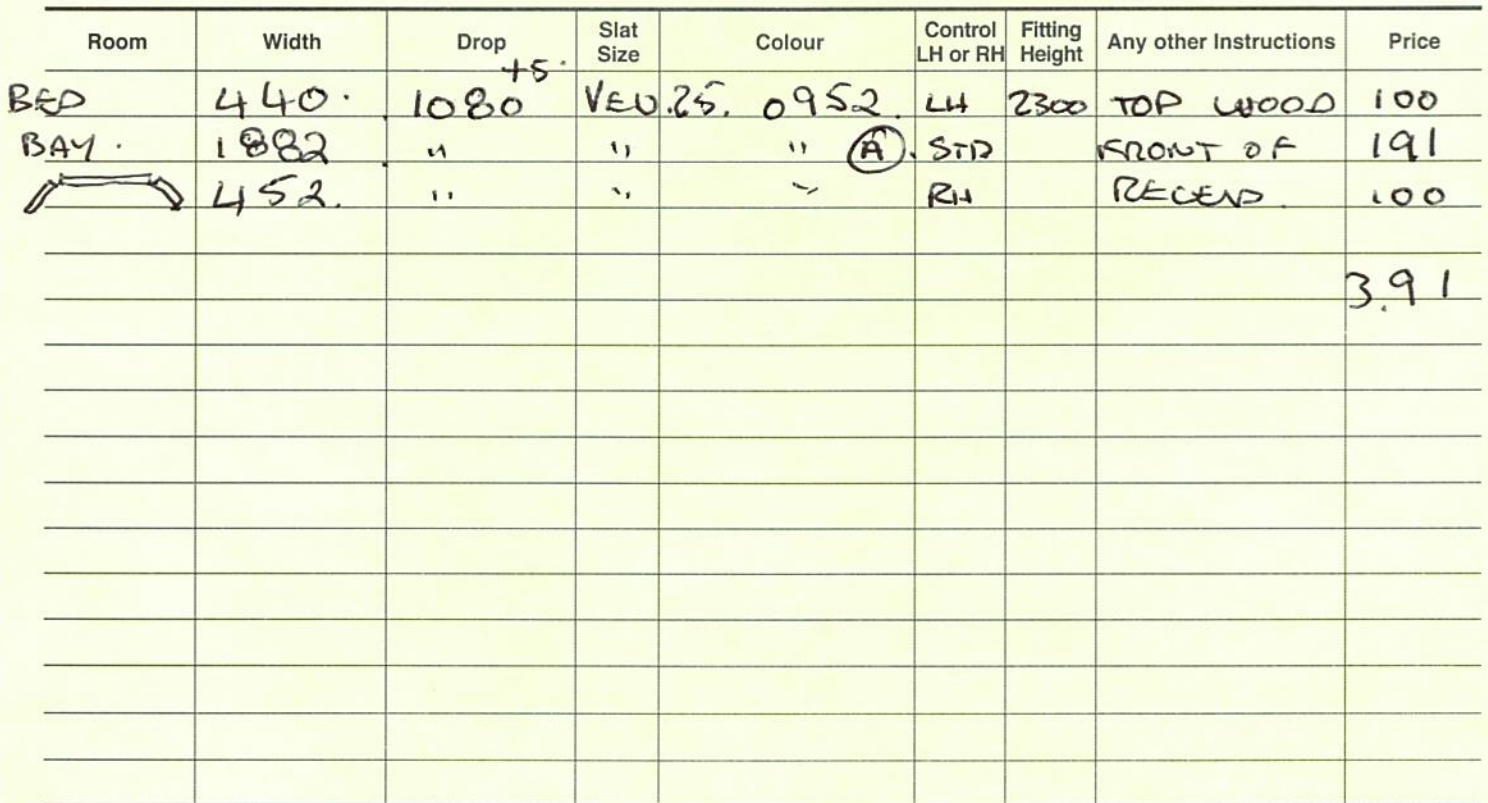 Room Width Drop Slat Size Colour Control LH or RH Fitting Height Any other Instructions Price
+5.
BED 440. 1080 VEN.25. 0952. LH 2300 TOP WOOD 100
BAY. 1882 " " " A. STD FRONT OF 191
452. " " " RH RECEND. 100
3.91